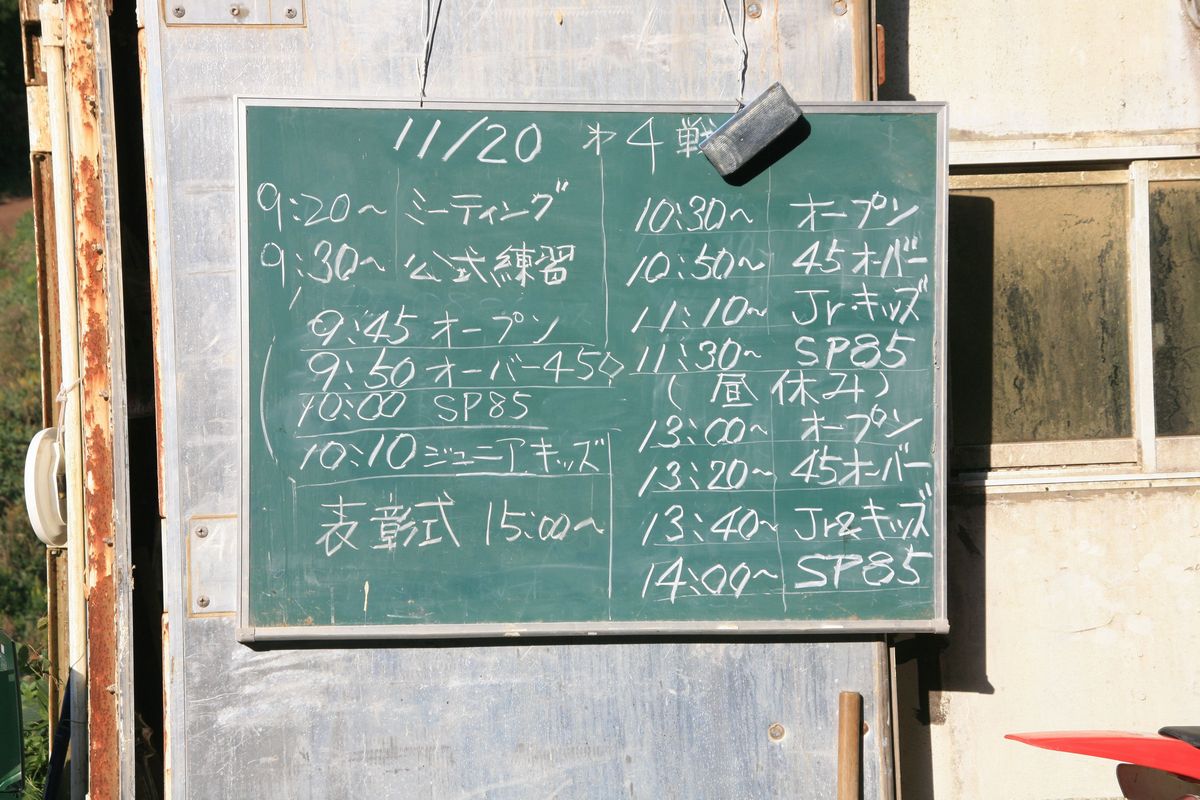 11/20 オ4戦
9:20〜 ミーティング
9:30〜 公式練習
9:45 オープン
9:50 オーバー450
10:00 SP85
10:10 ジュニア.キッズ
表彰式 15:00〜
10:30〜 オープン
10:50〜 45オーバー
11:10〜 Jr.キッズ
11:30〜 SP85
(昼休み)
13:00〜 オープン
13:20〜 45オーバー
13:40〜 Jr&キッズ
14:00〜 SP85